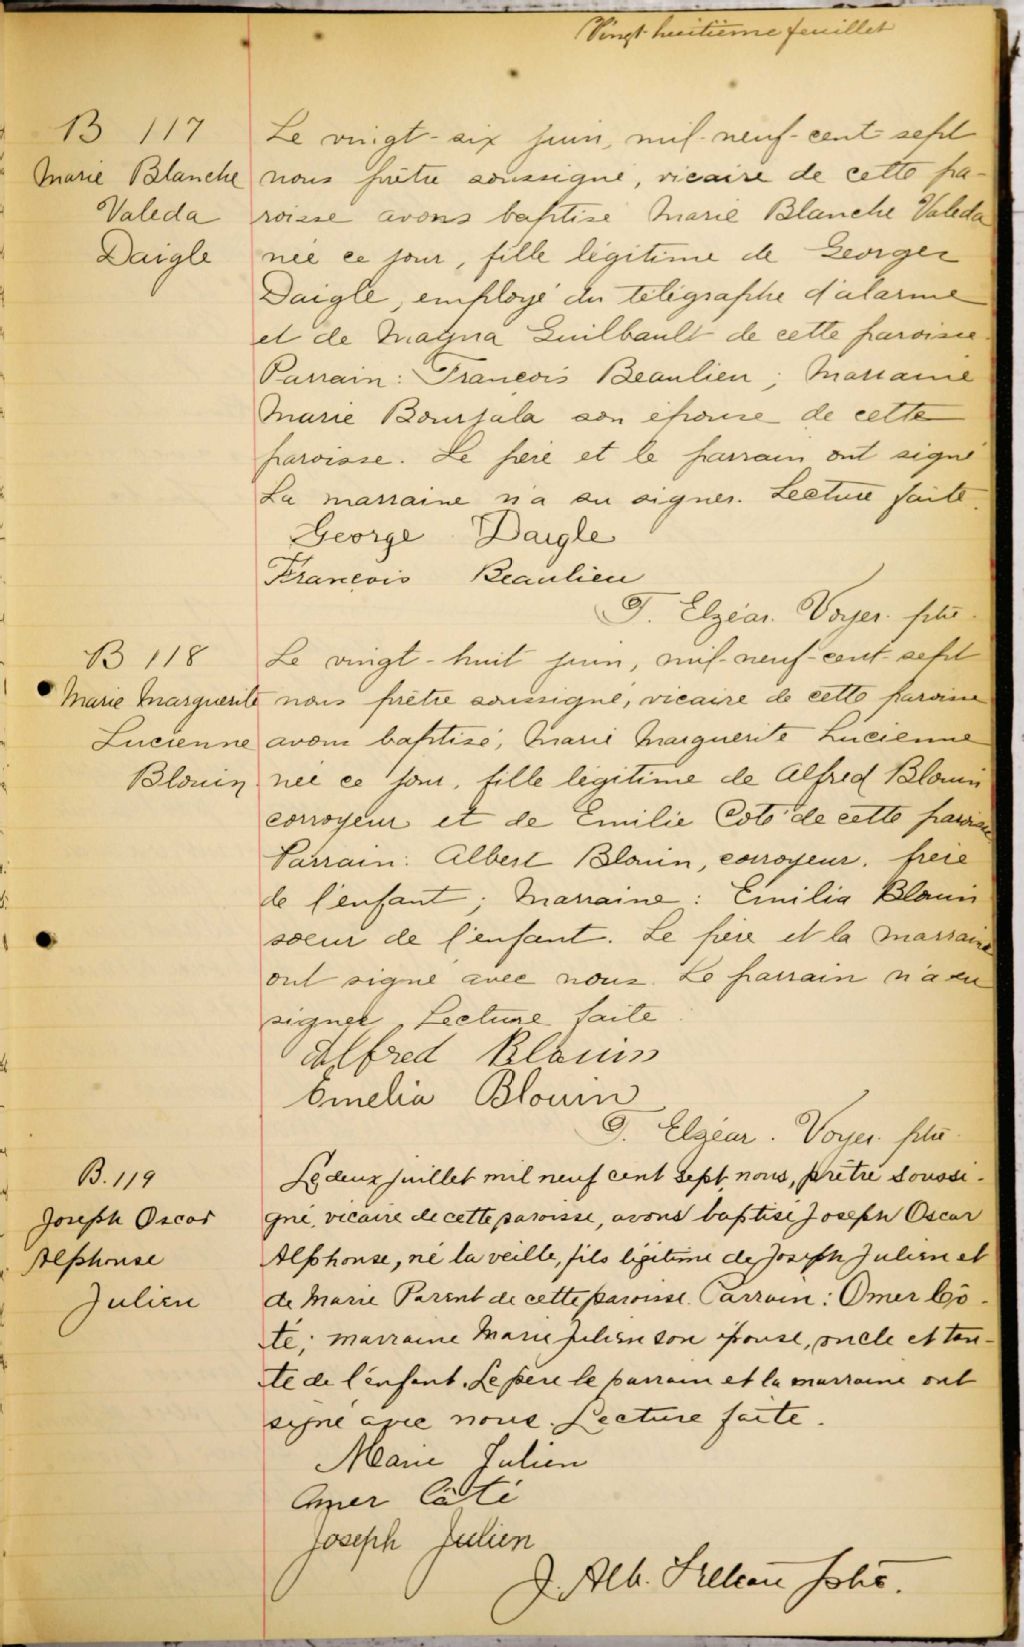 Vingt-huitième feuillet
B 117
Marie Blanche
Valeda
Daigle
Le vingt-six juin, mil-neuf-cent-sept
nous prêtre soussigné, vicaire de cette pa-
roisse avons baptisé Marie Blanche Valeda
née ce jour, fille légitime de Georges
Daigle, employé du télégraphe d'alarme
et de Magna Guilbault de cette paroisse.
Parrain: François Beaulieu; Marraine
Marie Bourjala son épouse de cette
paroisse. Le père et le parrain ont signé
La marraine n'a su signer. Lecture faite.
George Daigle
François Beaulieu
T. Elzéar. Voyer. ptre.
B 118
Marie Marguerite
Lucienne
Blouin
Le vingt-huit juin, mil-neuf-cent-sept
nous prêtre soussigné, vicaire de cette paroisse
avons baptisé, Marie Marguerite Lucienne
née ce jour, fille légitime de Alfred Blouin
corroyeur et de Emilie Coté de cette paroisse
Parrain: Albert Blouin, corroyeur, frère
de l'enfant; Marraine: Emilia Blouin
soeur de l'enfant. Le père et la marraine
ont signé avec nous. Le parrain n'a su
signer. Lecture faite.
Alfred Blouin
Emelia Blouin
T. Elzéar. Voyer. ptre.
B. 119
Joseph Oscar
Alphonse
Julien
Le deux juillet mil neuf cent sept, nous, prêtre soussi-
gné, vicaire de cette paroisse, avons baptisé Joseph Oscar
Alphonse, né la veille, fils légitime de Joseph Julien et
de Marie Parent de cette paroisse. Parrain: Omer Cô-
té; marraine Marie Julien son épouse, oncle et tan-
te de l'enfant. Le père le parrain et la marraine ont
signé avec nous. Lecture faite.
Marie Julien
Omer Côté
Joseph Julien
J. Alb. ptre.